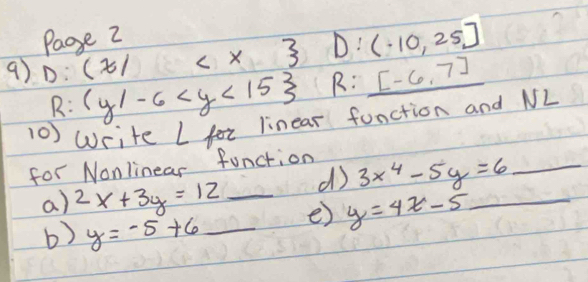 Page 2
9) D: {x/ < x } D: (-10, 25]
R: {y/ -6 < y < 15} R: [-6, 7]
10) Write L for linear function and NL
for Nonlinear function
a) 2x + 3y = 12 ___ d) 3x⁴ - 5y = 6 ___
b) y = -5 + 6 ___ e) y = 4x - 5 ___